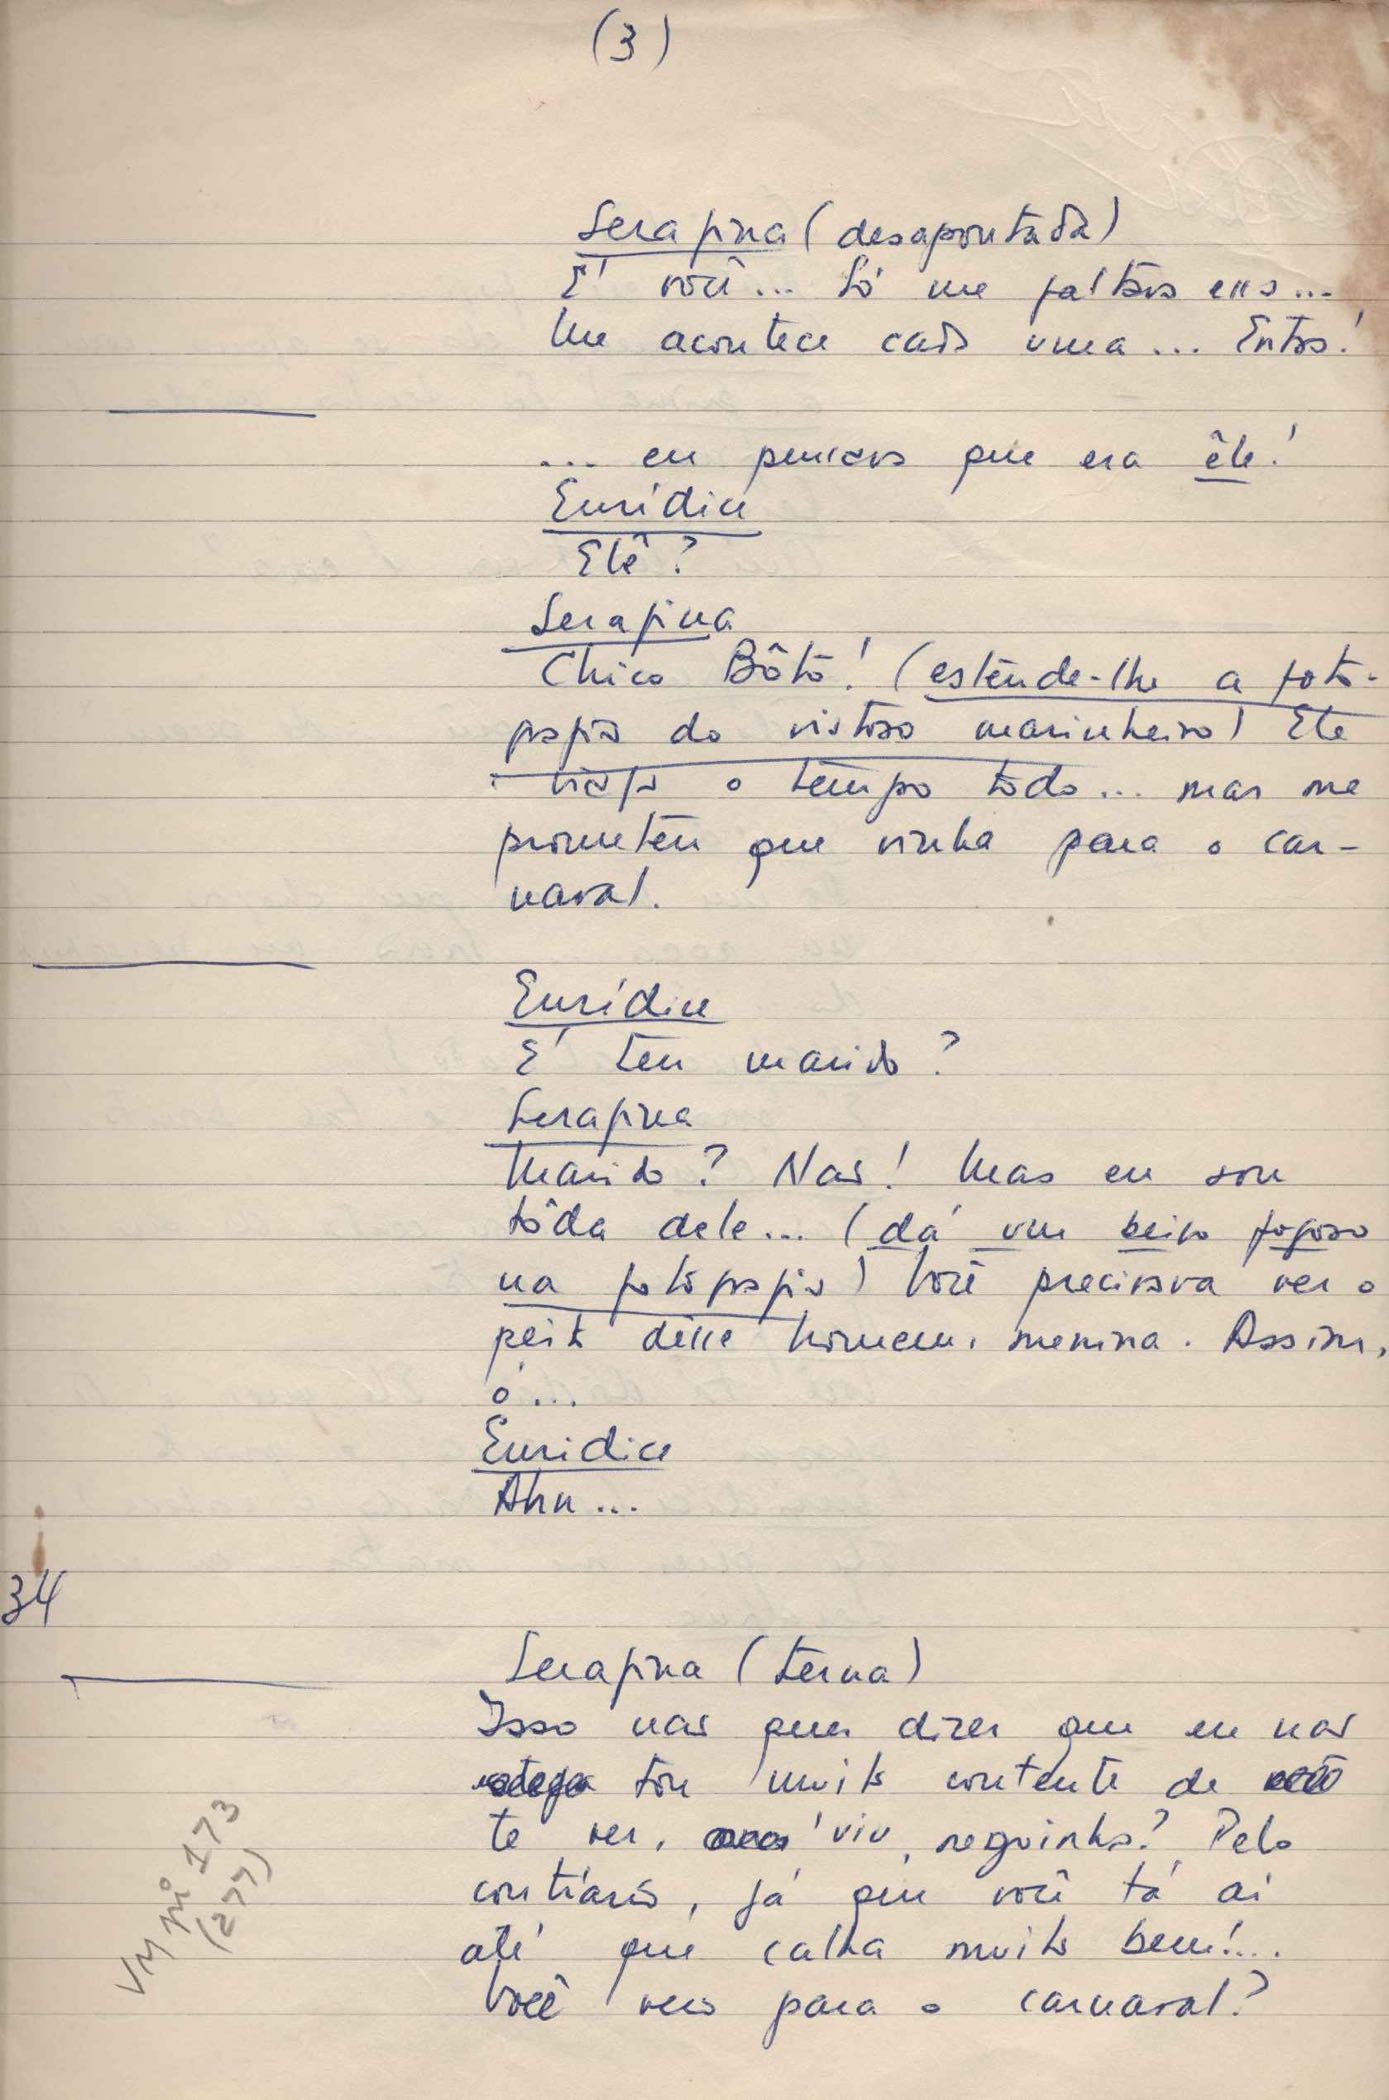 (3)
Serafina (desapontada)
É você... Só me faltava essa...
Me acontece cada uma... Entra!
... eu pensava que era êle!
Eurídice
Ele?
Serafina
Chico Bôto! (estende-lhe a foto-
grafia do vistoso marinheiro) Ele
viaja o tempo todo... mas me
prometeu que vinha para o car-
naval.
Eurídice
É teu marido?
Serafina
Marido? Não! Mas eu sou
tôda dele... (dá um beijo fogoso
na fotografia) Você precisava ver o
peito dêsse homem, menina. Assim,
ó...
Euridice
Ahn...
34
Serafina (terna)
Isso não quer dizer que eu não
tou muito contente de
te ver, viu, neguinha? Pelo
contrário, já que você tá aí
até que calha muito bem!...
Você veio para o carnaval?
VM nº 173
(277)